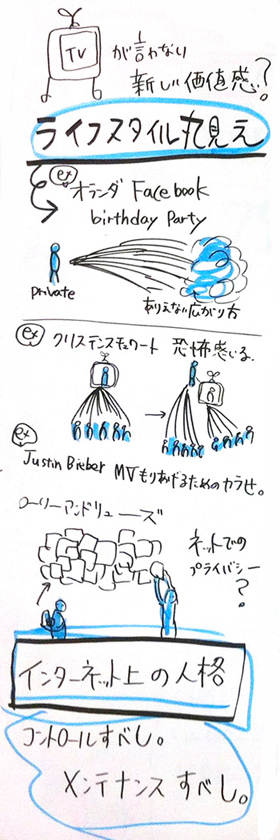 TV
が言わない
新しい価値感?
ライフスタイル丸見え
ex
オランダ Facebook
birthday Party
private
ありえない広がり方
ex クリステンスチュワート 恐怖感じる。
ex
Justin Bieber MVもりあげるためのヤラせ。
ローリーアンドリューズ
ネットでの
プライバシー
?
インターネット上の人格
コントロールすべし。
メンテナンスすべし。